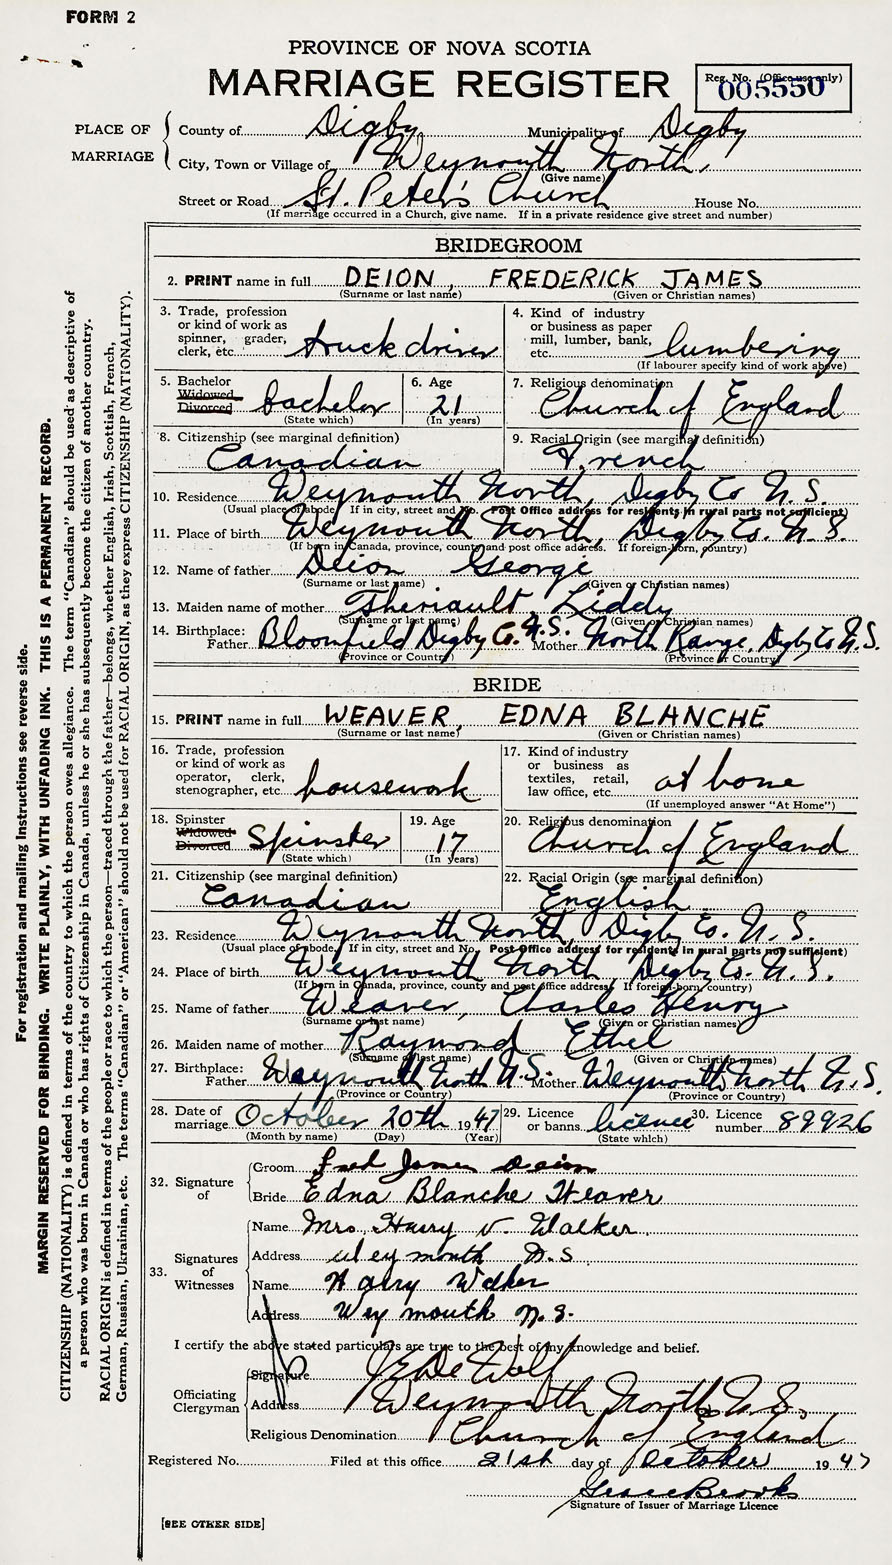 FORM 2
PROVINCE OF NOVA SCOTIA
MARRIAGE REGISTER
Reg. No. (Office use only)
005550
PLACE OF MARRIAGE
County of Digby Municipality of Digby
City, Town or Village of Weymouth North,
(Give name)
Street or Road St. Peter's Church House No.
(If marriage occurred in a Church, give name. If in a private residence give street and number)
BRIDEGROOM
2. PRINT name in full DEION, FREDERICK JAMES
(Surname or last name) (Given or Christian names)
3. Trade, profession or kind of work as spinner, grader, clerk, etc. truck driver
4. Kind of industry or business as paper mill, lumber, bank, etc. lumbering
(If labourer specify kind of work above)
5. Bachelor Widowed Divorced bachelor
(State which)
6. Age 21
(In years)
7. Religious denomination Church of England
8. Citizenship (see marginal definition) Canadian
9. Racial Origin (see marginal definition) French
10. Residence Weymouth North, Digby Co N.S.
(Usual place of abode. If in city, street and No. Post Office address for residents in rural parts not sufficient)
11. Place of birth Weymouth North, Digby Co. N.S.
(If born in Canada, province, county and post office address. If foreign-born, country)
12. Name of father Deion George
(Surname or last name) (Given or Christian names)
13. Maiden name of mother Theriault Liddy
(Surname or last name) (Given or Christian names)
14. Birthplace: Father Bloomfield Digby Co. N.S. Mother North Range, Digby Co N.S.
(Province or Country) (Province or Country)
BRIDE
15. PRINT name in full WEAVER, EDNA BLANCHE
(Surname or last name) (Given or Christian names)
16. Trade, profession or kind of work as operator, clerk, stenographer, etc. housework
17. Kind of industry or business as textiles, retail, law office, etc. at home
(If unemployed answer "At Home")
18. Spinster Widowed Divorced Spinster
(State which)
19. Age 17
(In years)
20. Religious denomination Church of England
21. Citizenship (see marginal definition) Canadian
22. Racial Origin (see marginal definition) English
23. Residence Weymouth North, Digby Co. N.S.
(Usual place of abode. If in city, street and No. Post Office address for residents in rural parts not sufficient)
24. Place of birth Weymouth North, Digby Co. N.S.
(If born in Canada, province, county and post office address. If foreign-born, country)
25. Name of father Weaver, Charles Henry
(Surname or last name) (Given or Christian names)
26. Maiden name of mother Raymond Ethel
(Surname or last name) (Given or Christian names)
27. Birthplace: Father Weymouth North N.S. Mother Weymouth North N.S.
(Province or Country) (Province or Country)
28. Date of marriage October 20th 1947
(Month by name) (Day) (Year)
29. Licence or banns licence
(State which)
30. Licence number 89926
32. Signature of
Groom Fred James Deion
Bride Edna Blanche Weaver
33. Signatures of Witnesses
Name Mrs. Harry V. Walker
Address Weymouth N.S
Name Harry Walker
Address Weymouth N.S.
I certify the above stated particulars are true to the best of my knowledge and belief.
Officiating Clergyman
Signature J E De Wolf
Address Weymouth North N.S.
Religious Denomination Church of England
Registered No. Filed at this office 21st day of October 1947
Grace Brooks
Signature of Issuer of Marriage Licence
[SEE OTHER SIDE]
For registration and mailing instructions see reverse side.
MARGIN RESERVED FOR BINDING. WRITE PLAINLY, WITH UNFADING INK. THIS IS A PERMANENT RECORD.
CITIZENSHIP (NATIONALITY) is defined in terms of the country to which the person owes allegiance. The term "Canadian" should be used as descriptive of
a person who was born in Canada or who has rights of Citizenship in Canada, unless he or she has subsequently become the citizen of another country.
RACIAL ORIGIN is defined in terms of the people or race to which the person—traced through the father—belongs, whether English, Irish, Scottish, French,
German, Russian, Ukrainian, etc. The terms "Canadian" or "American" should not be used for RACIAL ORIGIN, as they express CITIZENSHIP (NATIONALITY).